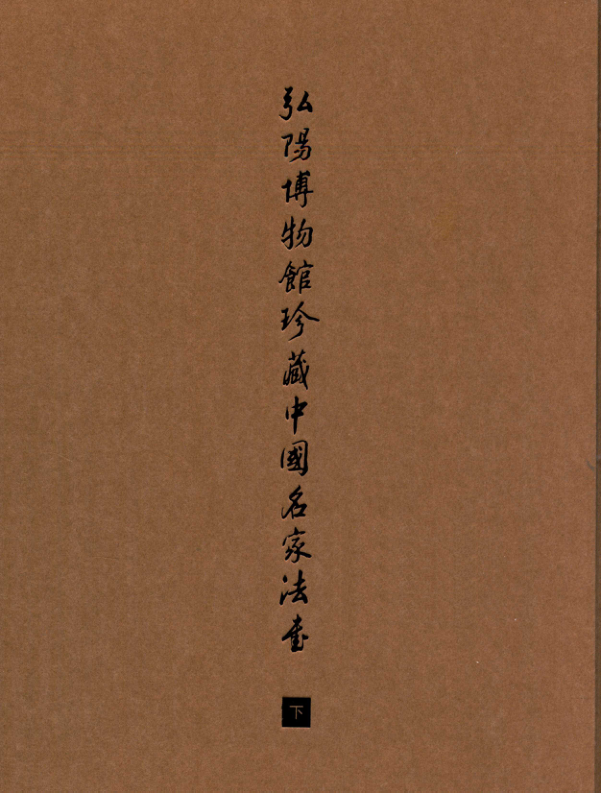 弘陽博物館珍藏中國名家法書
下